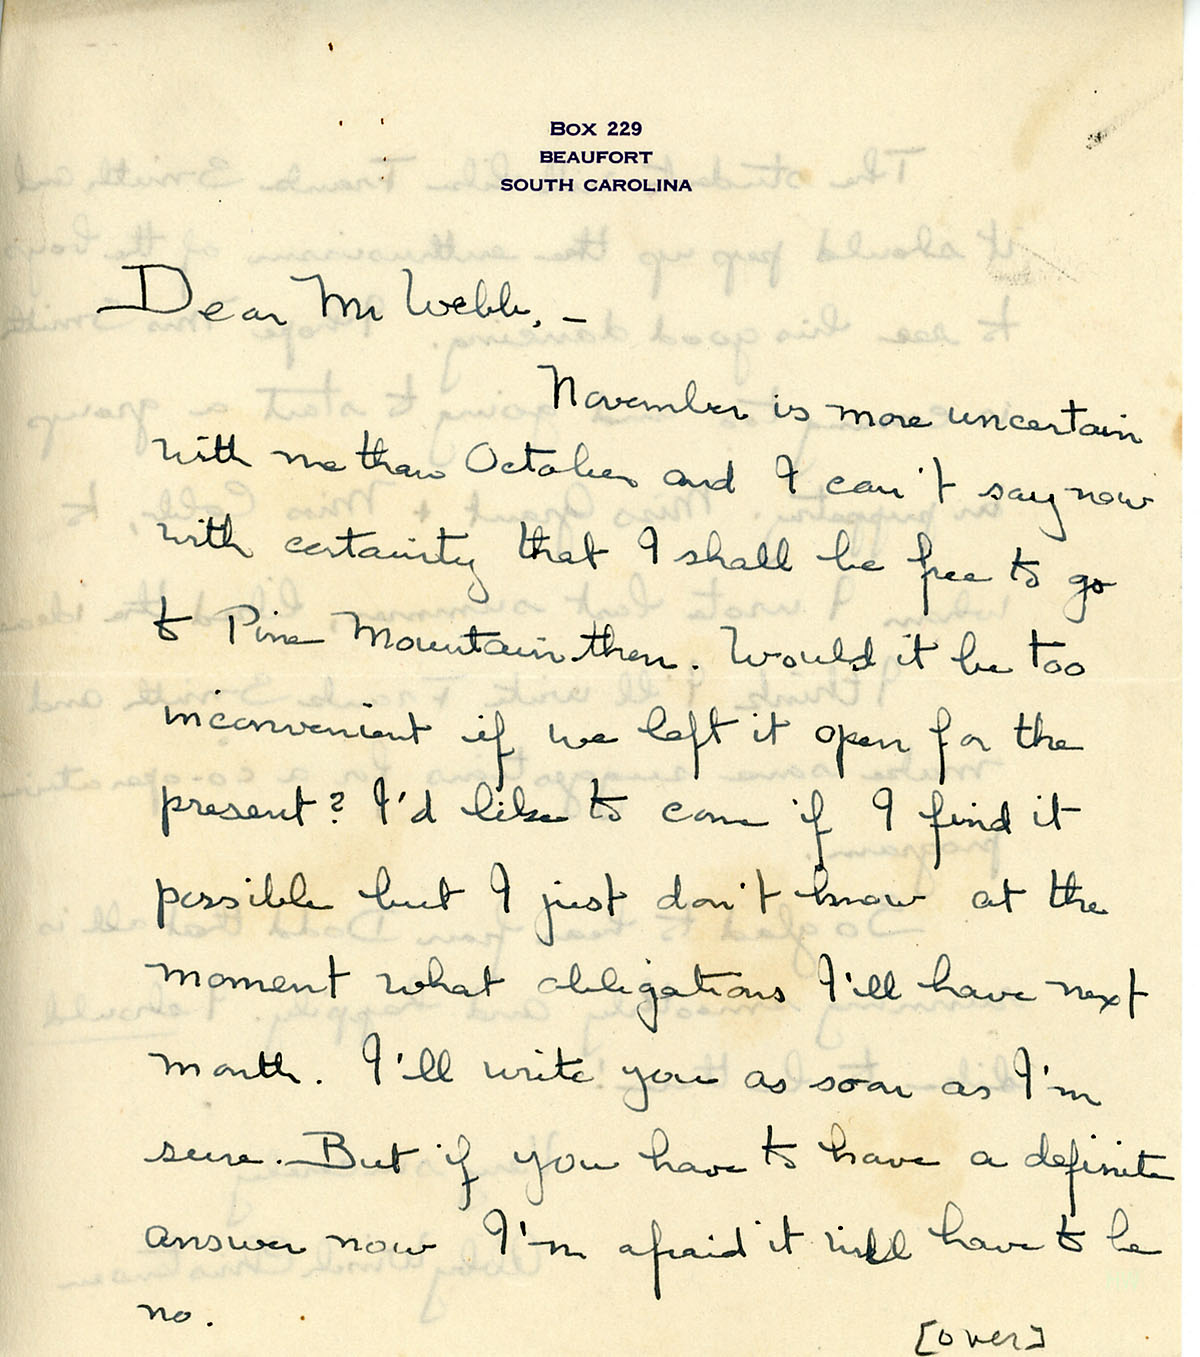 BOX 229
BEAUFORT
SOUTH CAROLINA
Dear Mr Webb, –
November is more uncertain
with me than October and I can't say now
with certainty that I shall be free to go
to Pine Mountain then. Would it be too
inconvenient if we left it open for the
present? I'd like to come if I find it
possible but I just don't know at the
moment what obligations I'll have next
month. I'll write you as soon as I'm
sure. But if you have to have a definite
answer now I'm afraid it will have to be
no.
[over]